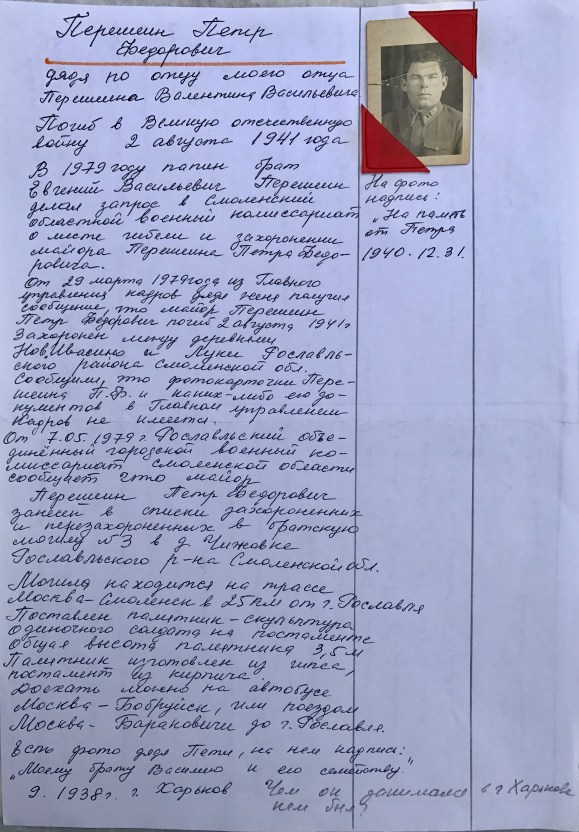 Перешеин Петр
Федорович
дядя по отцу моего отца
Перешеина Валентина Васильевича.
Погиб в Великую отечественную
войну 2 августа 1941 года
В 1979 году папин брат
Евгений Васильевич Перешеин
делал запрос в Смоленский
областной военный комиссариат
о месте гибели и захоронении
майора Перешеина Петра Федо-
ровича.
На фото
надпись:
„На память
от Петра
1940. 12. 31.
От 29 марта 1979 года из Главного
управления кадров дядя Женя получил
сообщение, что майор Перешеин
Петр Федорович погиб 2 августа 1941 г
Захоронен между деревнями
Нов. Ивасино и Луки Рославль-
ского района Смоленской обл.
Сообщили, что фотокарточки Пере-
шеина П.Ф. и каких-либо его до-
кументов в Главном управлении
Кадров не имеется.
От 7.05.1979 г. Рославльский объе-
динённый городской военный ко-
миссариат Смоленской области
сообщает что майор
Перешеин Петр Федорович
занесен в списки захороненных
и перезахороненных в братскую
могилу №3 в д. Чижовке
Рославльского р-на Смоленской обл.
Могила находится на трассе
Москва-Смоленск в 25 км от г. Рославля
Поставлен памятник - скульптура
одиночного солдата на постаменте
Общая высота памятника 3,5 м
Памятник изготовлен из гипса,
постамент из кирпича.
Доехать можно на автобусе
Москва - Бобруйск, или поездом
Москва - Барановичи до г. Рославля.
Есть фото дяди Пети, на нем надпись:
„Моему брату Василию и его семейству."
9. 1938 г. г. Харьков Чем он занимался в г Харькове
кем был?